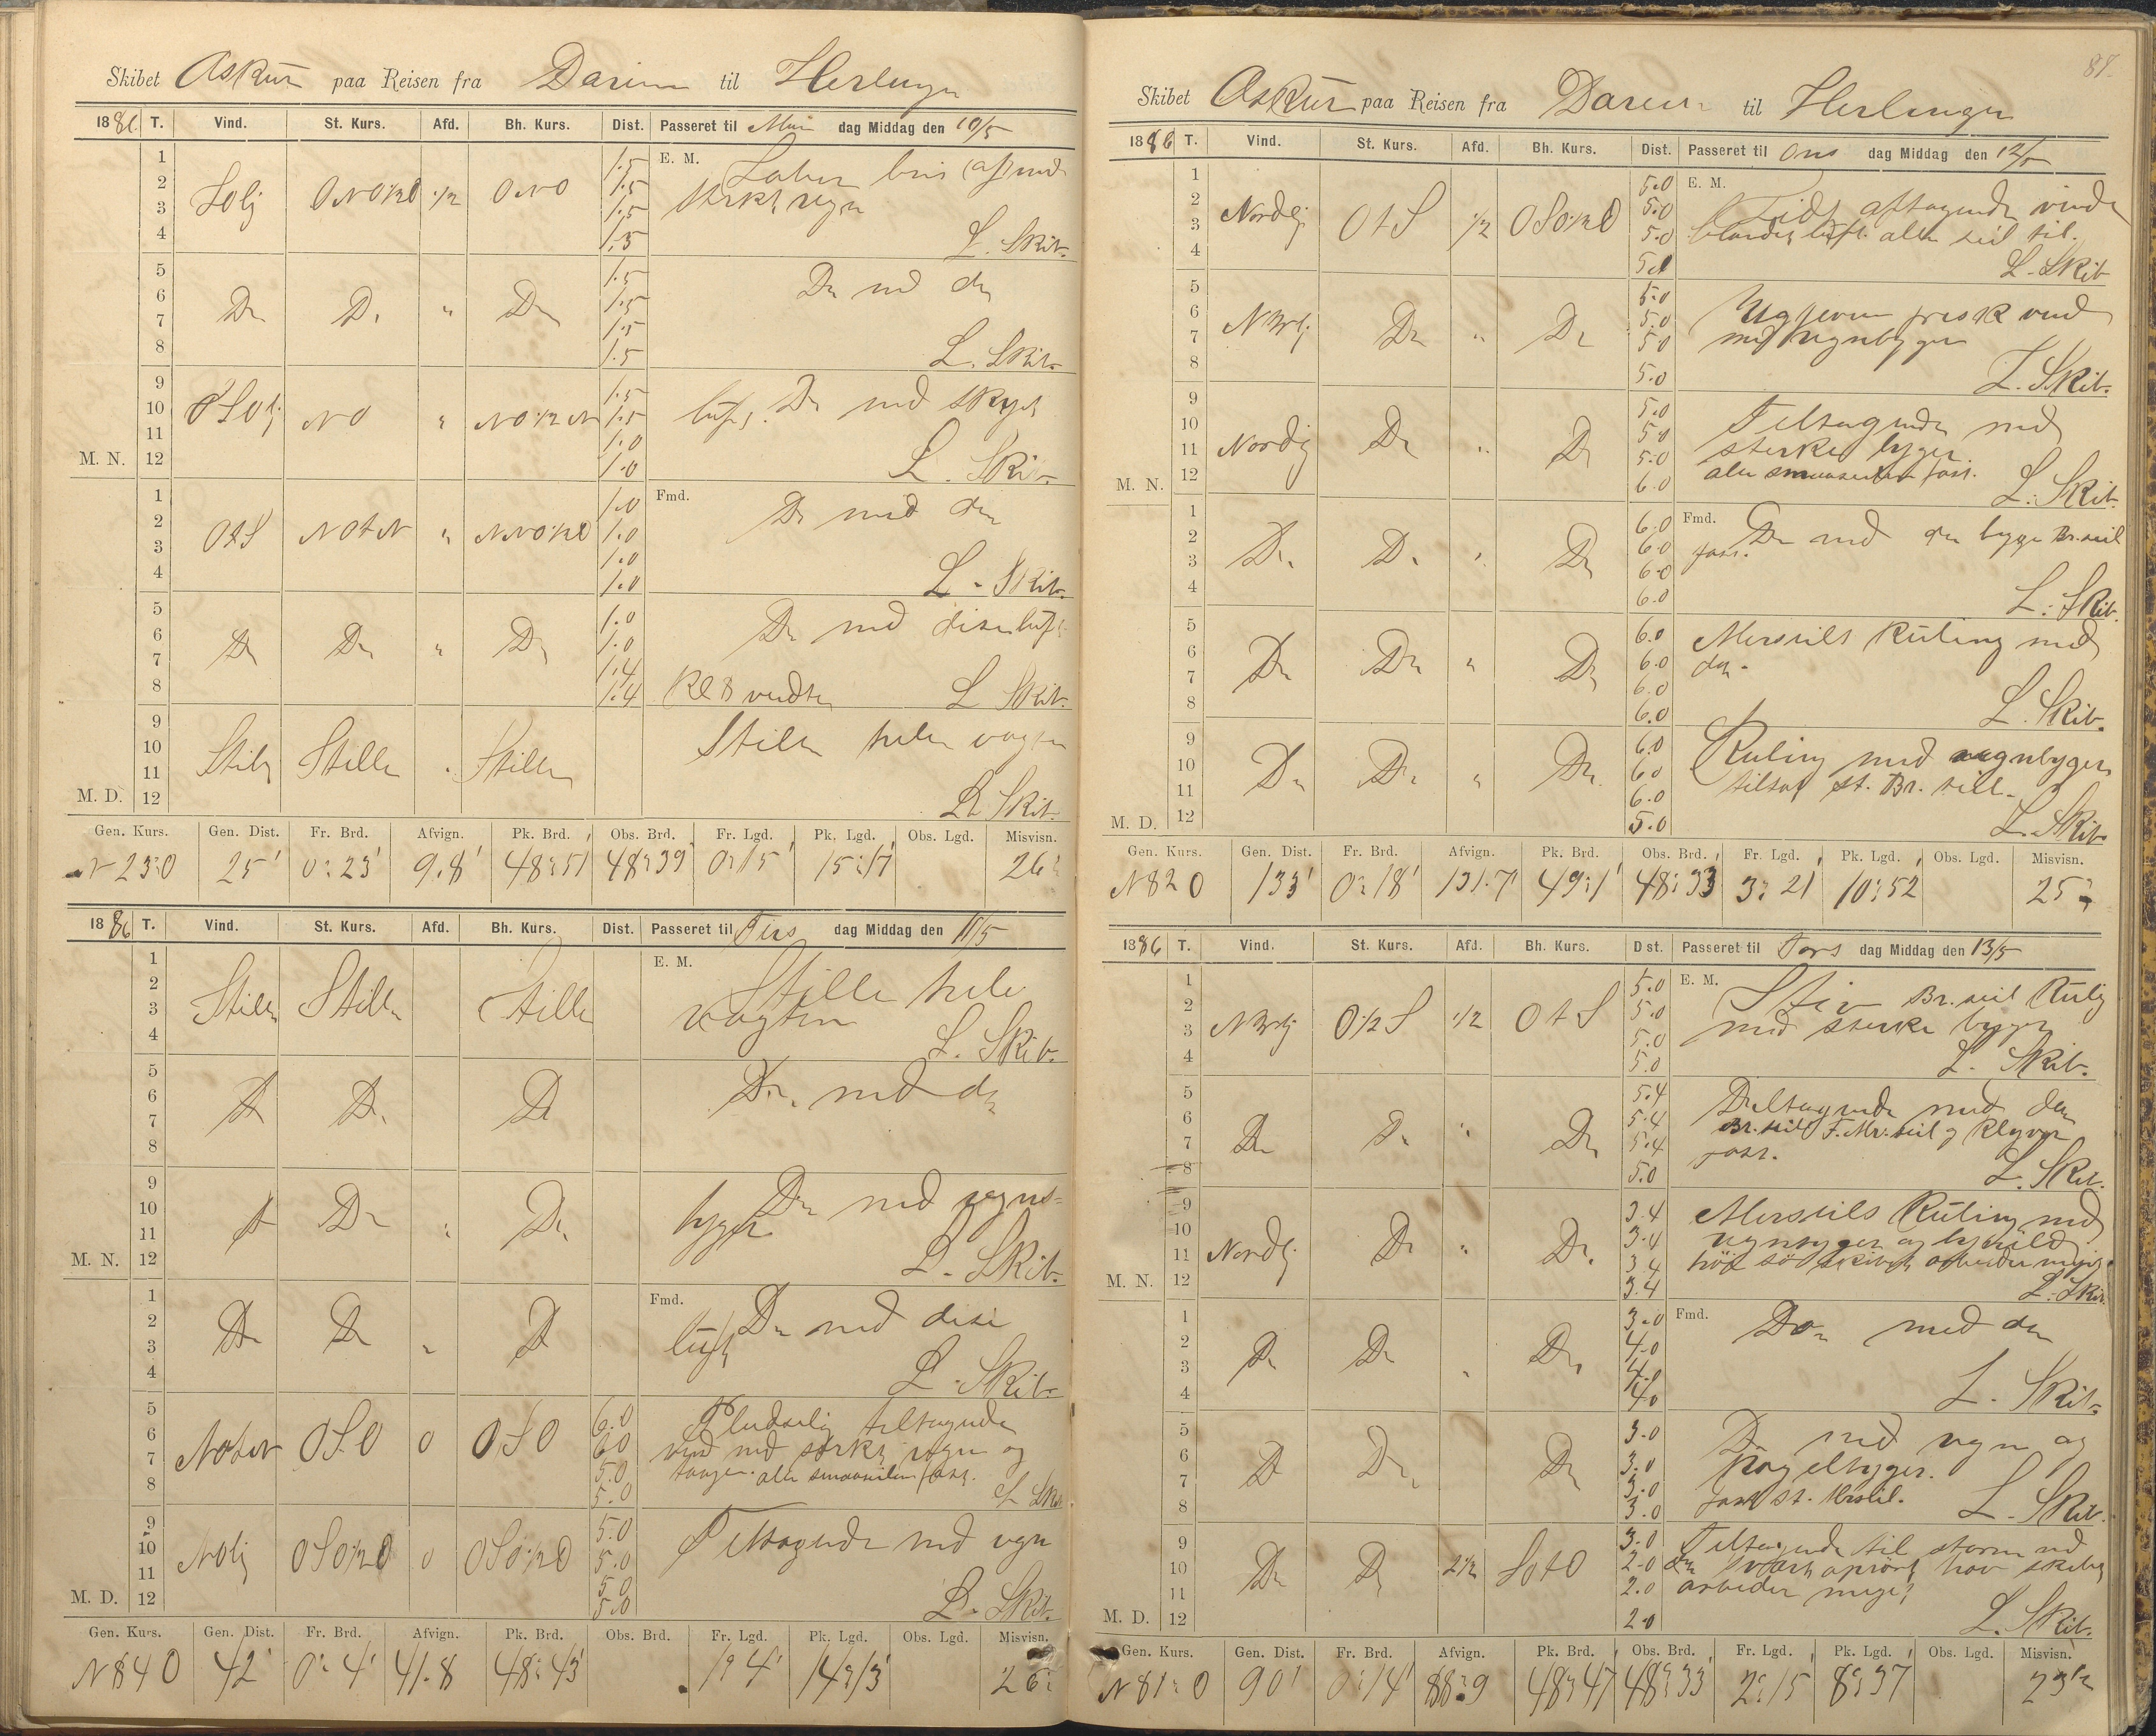 Skibet Askur paa Reisen fra Darien til Herlingen
1886 T. Vind. St. Kurs. Afd. Bh. Kurs. Dist. Passeret til Man dag Middag den 10/5
1 2 3 4 Solj ONO½O ½ ONO 1.5 1.5 1.5 1.5 E. M. Laber bris af med
sterkt regn
L. Skib.
5 6 7 8 Do Do " Do 1.5 1.5 1.5 1.5 Do med do
L. Skib.
9 10 11 M. N. 12 OSOlj NO " NO½N 1.5 1.5 1.0 1.0 Do med skyet
luft.
L. Skib.
1 2 3 4 OtS NOtN " NNO½O 1.0 1.0 1.0 1.0 Fmd. Do med do
L. Skib.
5 6 7 8 Do Do " Do 1.0 1.0 1.4 1.4 Do med dise luft
Kl 8 vendte L. Skib.
9 10 11 M. D. 12 Stille Stille Stille Stille hele vagten
L. Skib.
Gen. Kurs. Gen. Dist. Fr. Brd. Afvign. Pk. Brd. Obs. Brd. Fr. Lgd. Pk. Lgd. Obs. Lgd. Misvisn.
N 23 O 25' 0° 23' 9.8' 48° 51' 48° 39' 0° 15' 15° 17' 26°
1886 T. Vind. St. Kurs. Afd. Bh. Kurs. Dist. Passeret til Tirs dag Middag den 11/5
1 2 3 4 Stille Stille Stille E. M. Stille hele
vagten
L. Skib.
5 6 7 8 Do Do Do Do med do
9 10 11 M. N. 12 Do Do " Do Do med regns=
byger
L. Skib.
1 2 3 4 Do Do " Do Fmd. Do med dise
luft
L. Skib.
5 6 7 8 NOtN OSO 0 OSO 6.0 6.0 5.0 5.0 Pludselig tiltagende
vind med sterkt regn og
taage. alle smaaseilene fast.
L. Skib
9 10 11 M. D. 12 NOlj OSO½O 0 OSO½O 5.0 5.0 5.0 5.0 Tiltagende med regn
L. Skib.
Gen. Kurs. Gen. Dist. Fr. Brd. Afvign. Pk. Brd. Obs. Brd. Fr. Lgd. Pk. Lgd. Obs. Lgd. Misvisn.
N 84 O 42' 0° 4' 41.8 48° 43' 1° 4' 14° 13' 26°
87.
Skibet Askur paa Reisen fra Darien til Herlingen
1886 T. Vind. St. Kurs. Afd. Bh. Kurs. Dist. Passeret til Ons dag Middag den 12/5
1 2 3 4 Nordlj OtS ½ OSO½O 5.0 5.0 5.0 5.0 E. M. Lidt aftagende vind
blandet luft. alle seil til.
L. Skib
5 6 7 8 NNVlj Do " Do 5.0 5.0 5.0 5.0 Ugjevn frisk vind
med regnbyger
L. Skib.
9 10 11 M. N. 12 Nordlj Do " Do 5.0 5.0 5.0 6.0 Tiltagende med
sterke byger.
alle smaaseilene fast.
L. Skib.
1 2 3 4 Do Do " Do 6.0 6.0 6.0 6.0 Fmd. Do med do byge Br. seil
fast.
L. Skib.
5 6 7 8 Do Do " Do 6.0 6.0 6.0 6.0 Merseils Kuling med
do.
L. Skib.
9 10 11 M. D. 12 Do Do " Do 6.0 6.0 6.0 5.0 Kuling med regnbyger
tilsat St. Br. seil.
L. Skib.
Gen. Kurs. Gen. Dist. Fr. Brd. Afvign. Pk. Brd. Obs. Brd. Fr. Lgd. Pk. Lgd. Obs. Lgd. Misvisn.
N 82 O 133' 0° 18' 131.7' 49° 1' 48° 33 3° 21 10° 52 25°
1886 T. Vind. St. Kurs. Afd. Bh. Kurs. Dist. Passeret til Tors dag Middag den 13/5
1 2 3 4 NNVlj O½S ½ OtS 5.0 5.0 5.0 5.0 E. M. Stiv Br. seil Kuling
med sterke byger
L. Skib.
5 6 7 8 Do Do " Do 5.4 5.4 5.4 5.0 Tiltagende med do
Br. seil F. Mr. seil og Klyver
fast.
L. Skib.
9 10 11 M. N. 12 Nordlj Do " Do 3.4 3.4 3.4 3.4 Merseils Kuling med
regnbyger og
høi sø skibet arbeider meget.
L. Skib.
1 2 3 4 Do Do " Do 3.0 4.0 4.0 4.0 Fmd. Do med do
L. Skib.
5 6 7 8 Do Do Do 3.0 3.0 3.0 3.0 Do med regn og
hagelbyger.
fast St. Merseil. L. Skib.
9 10 11 M. D. 12 Do Do 2½ SOtO 3.0 2.0 2.0 2.0 Tiltagende til storm med
do svært oprørt hav skibet
arbeider meget
L. Skib.
Gen. Kurs. Gen. Dist. Fr. Brd. Afvign. Pk. Brd. Obs. Brd. Fr. Lgd. Pk. Lgd. Obs. Lgd. Misvisn.
N 81° O 90' 0° 14' 88.9 48° 47' 48° 33' 2° 15 8° 37 23½